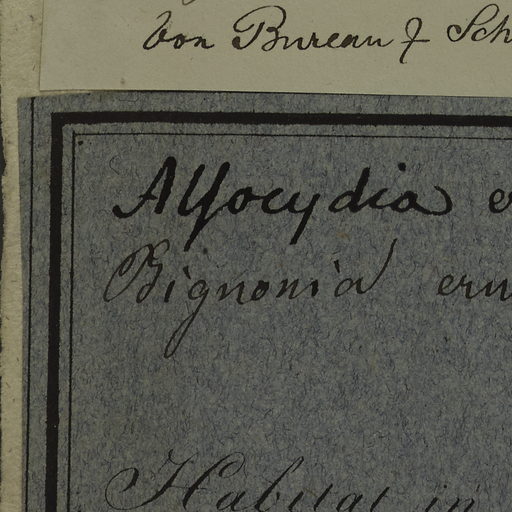 von Bureau & Sch
Alsocydia e
Bignonia eru
Habitat in